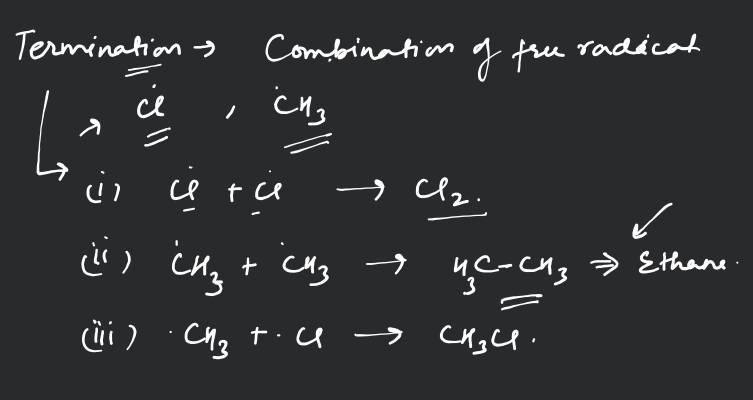 Termination → Combination of free radical
Ċl , ĊH₃
(i) Ċl + Ċl → Cl₂.
(ii) ĊH₃ + ĊH₃ → H₃C-CH₃ ⇒ Ethane.
(iii) ·CH₃ + ·Cl → CH₃Cl.